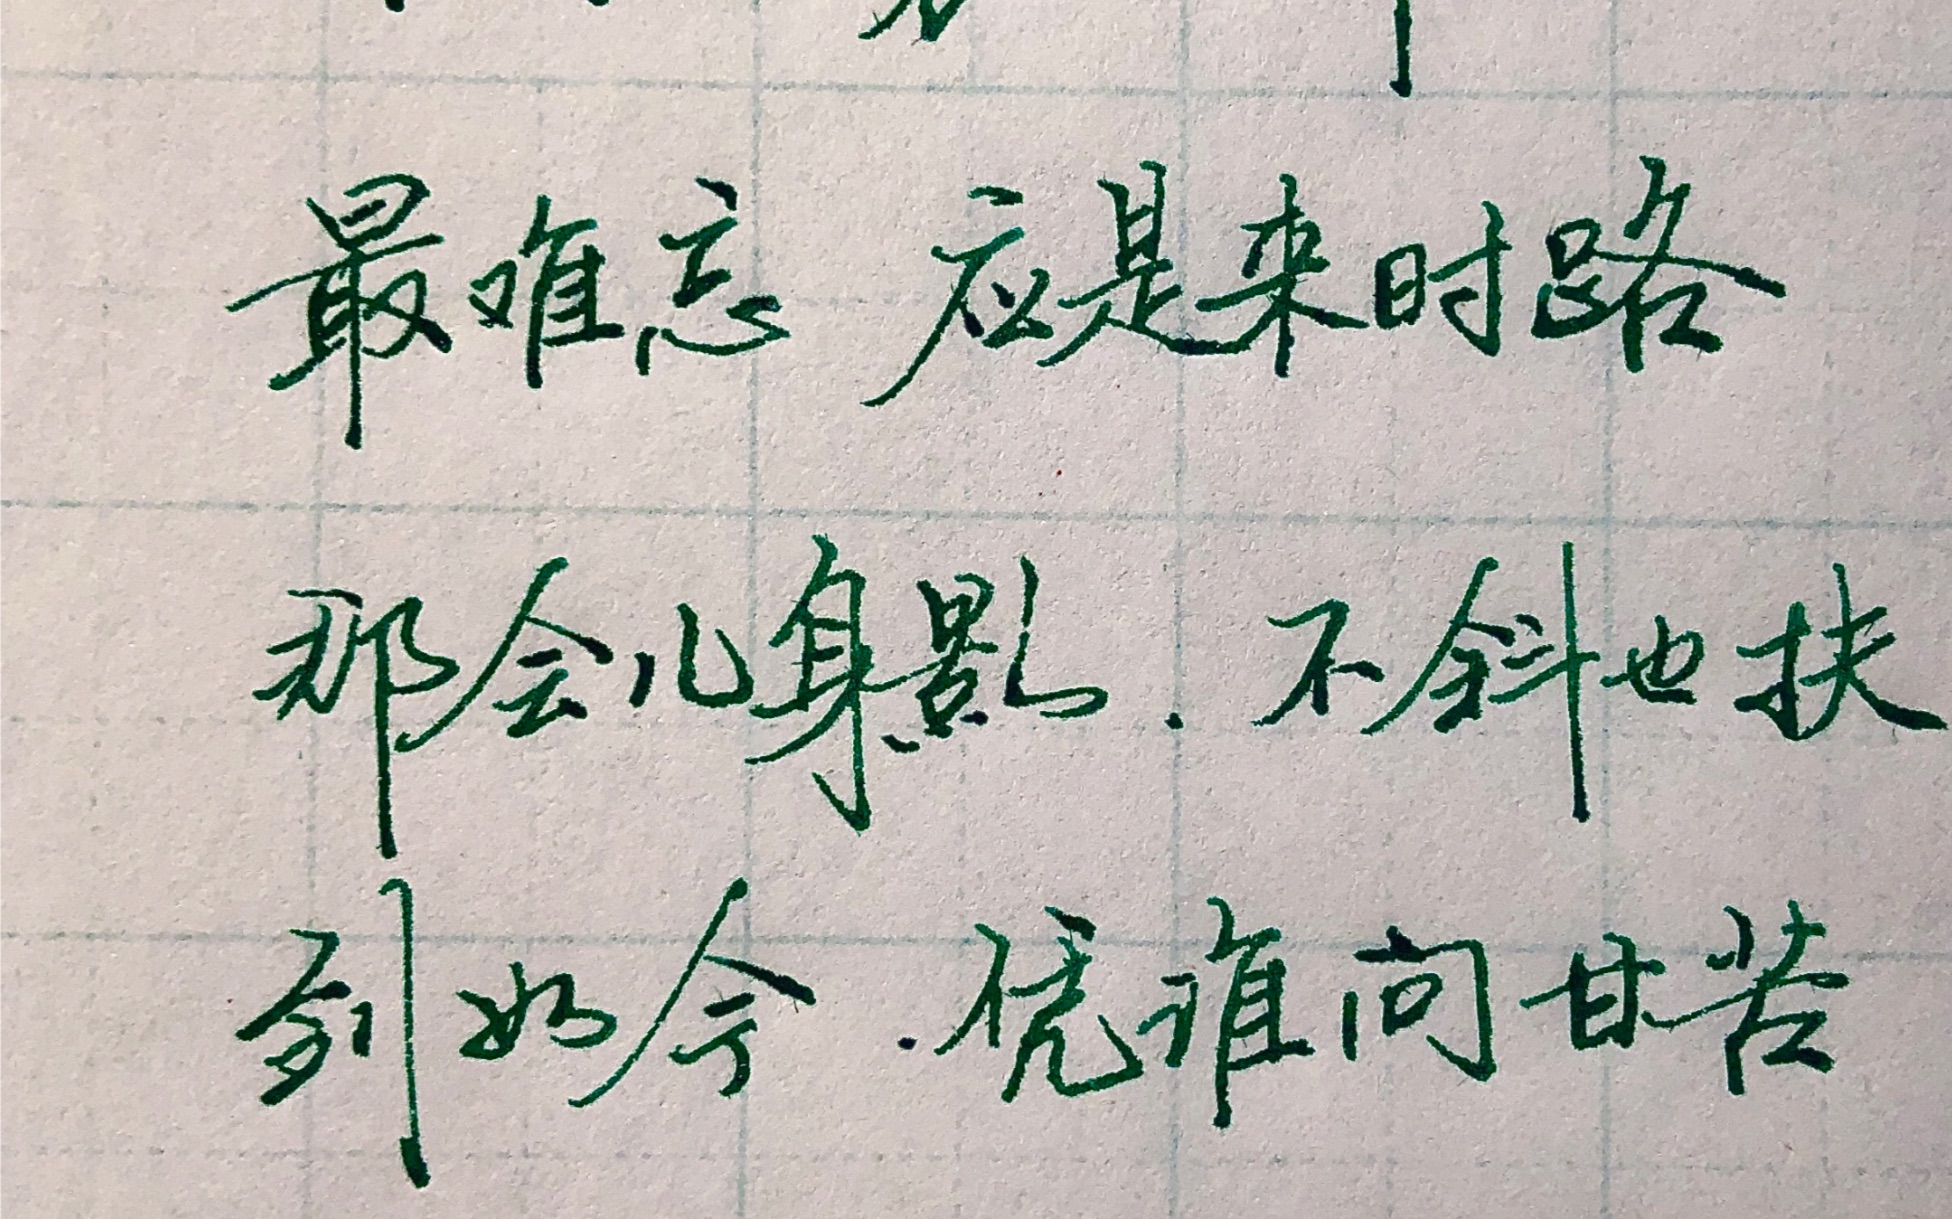 最难忘 应是来时路
那会儿身影.不斜也扶
到如今.凭谁问甘苦